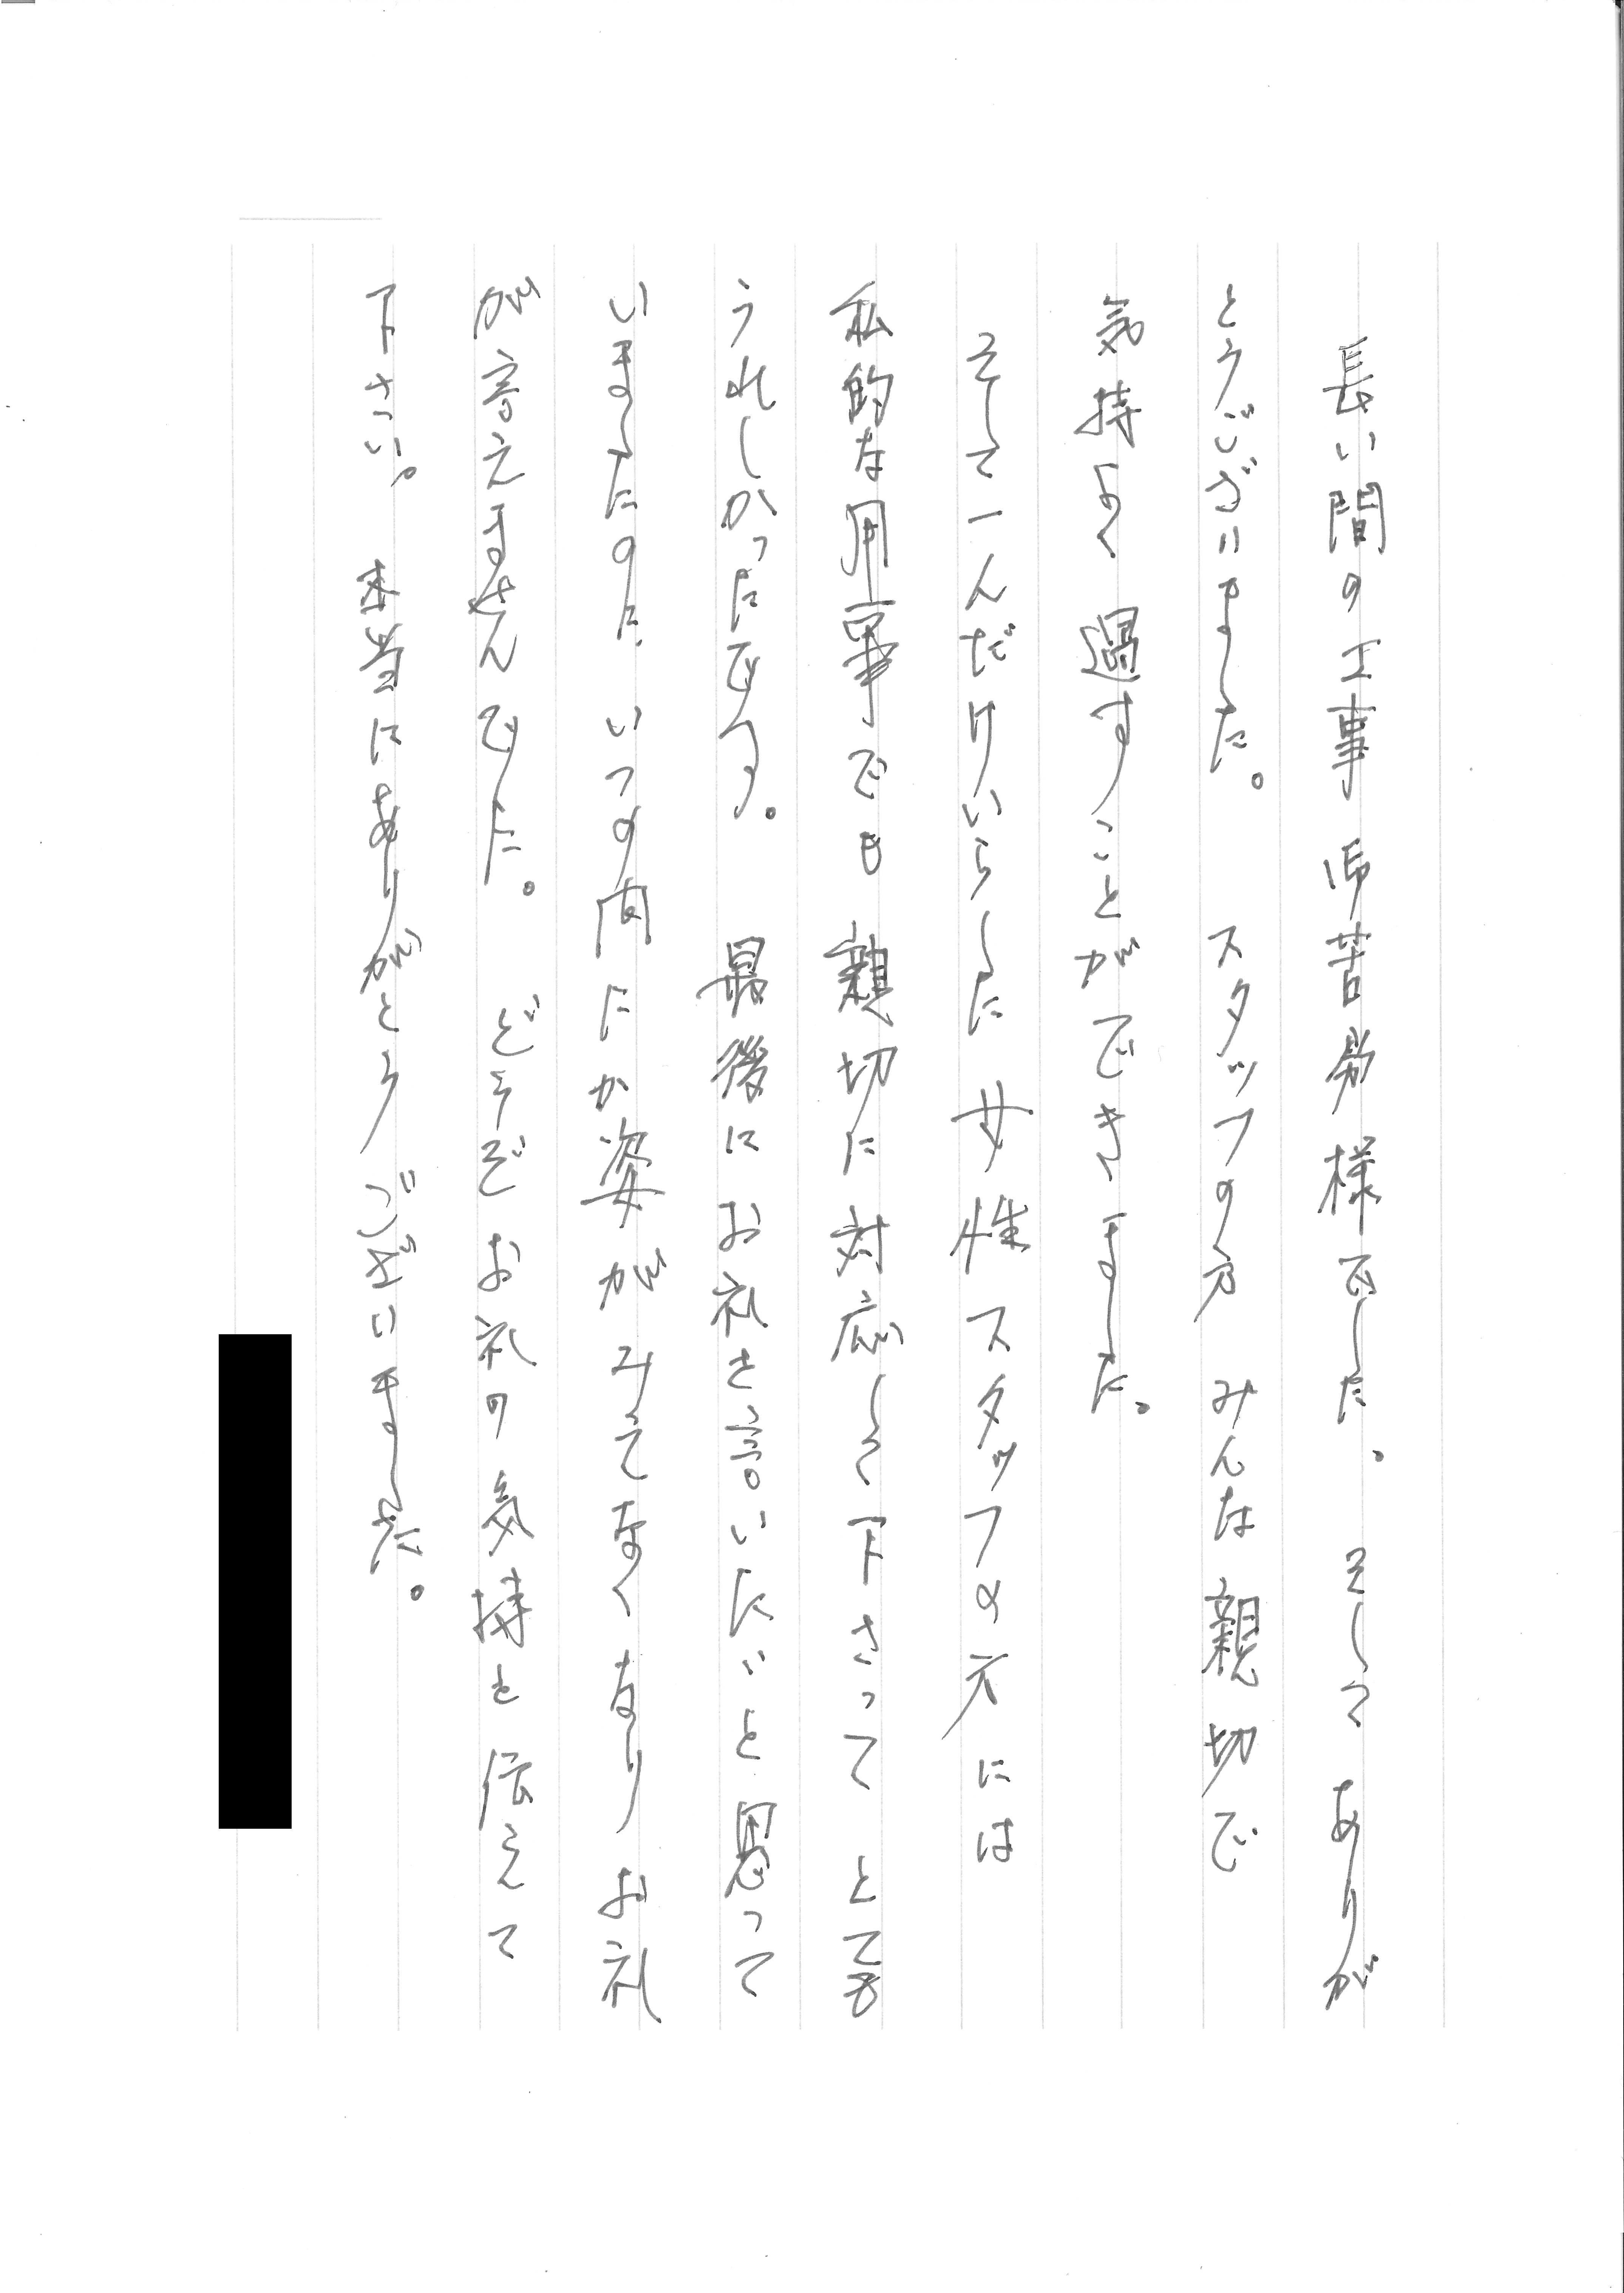 長い間の工事 御苦労様でした。 そして ありが
とうございました。 スタッフの方 みんな 親切で
気持よく 過すことができました。
そして一人だけいらした 女性スタッフの方には
私的な用事でも 親切に対応して下さって とても
うれしかったです。 最後にお礼を言いたいと思って
いましたのに いつの間にか姿が みえなくなり お礼
が言えませんでした。 どうぞお礼の気持を伝えて
下さい。 本当にありがとうございました。